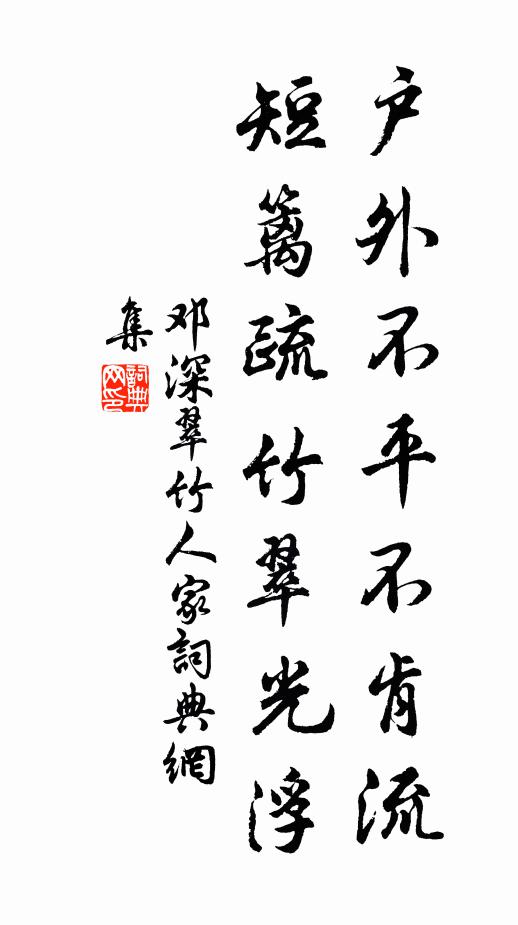 户外不平不肯流
短篱疏竹翠光浮
邓深翠竹人家詞典網
集
詞典
网印